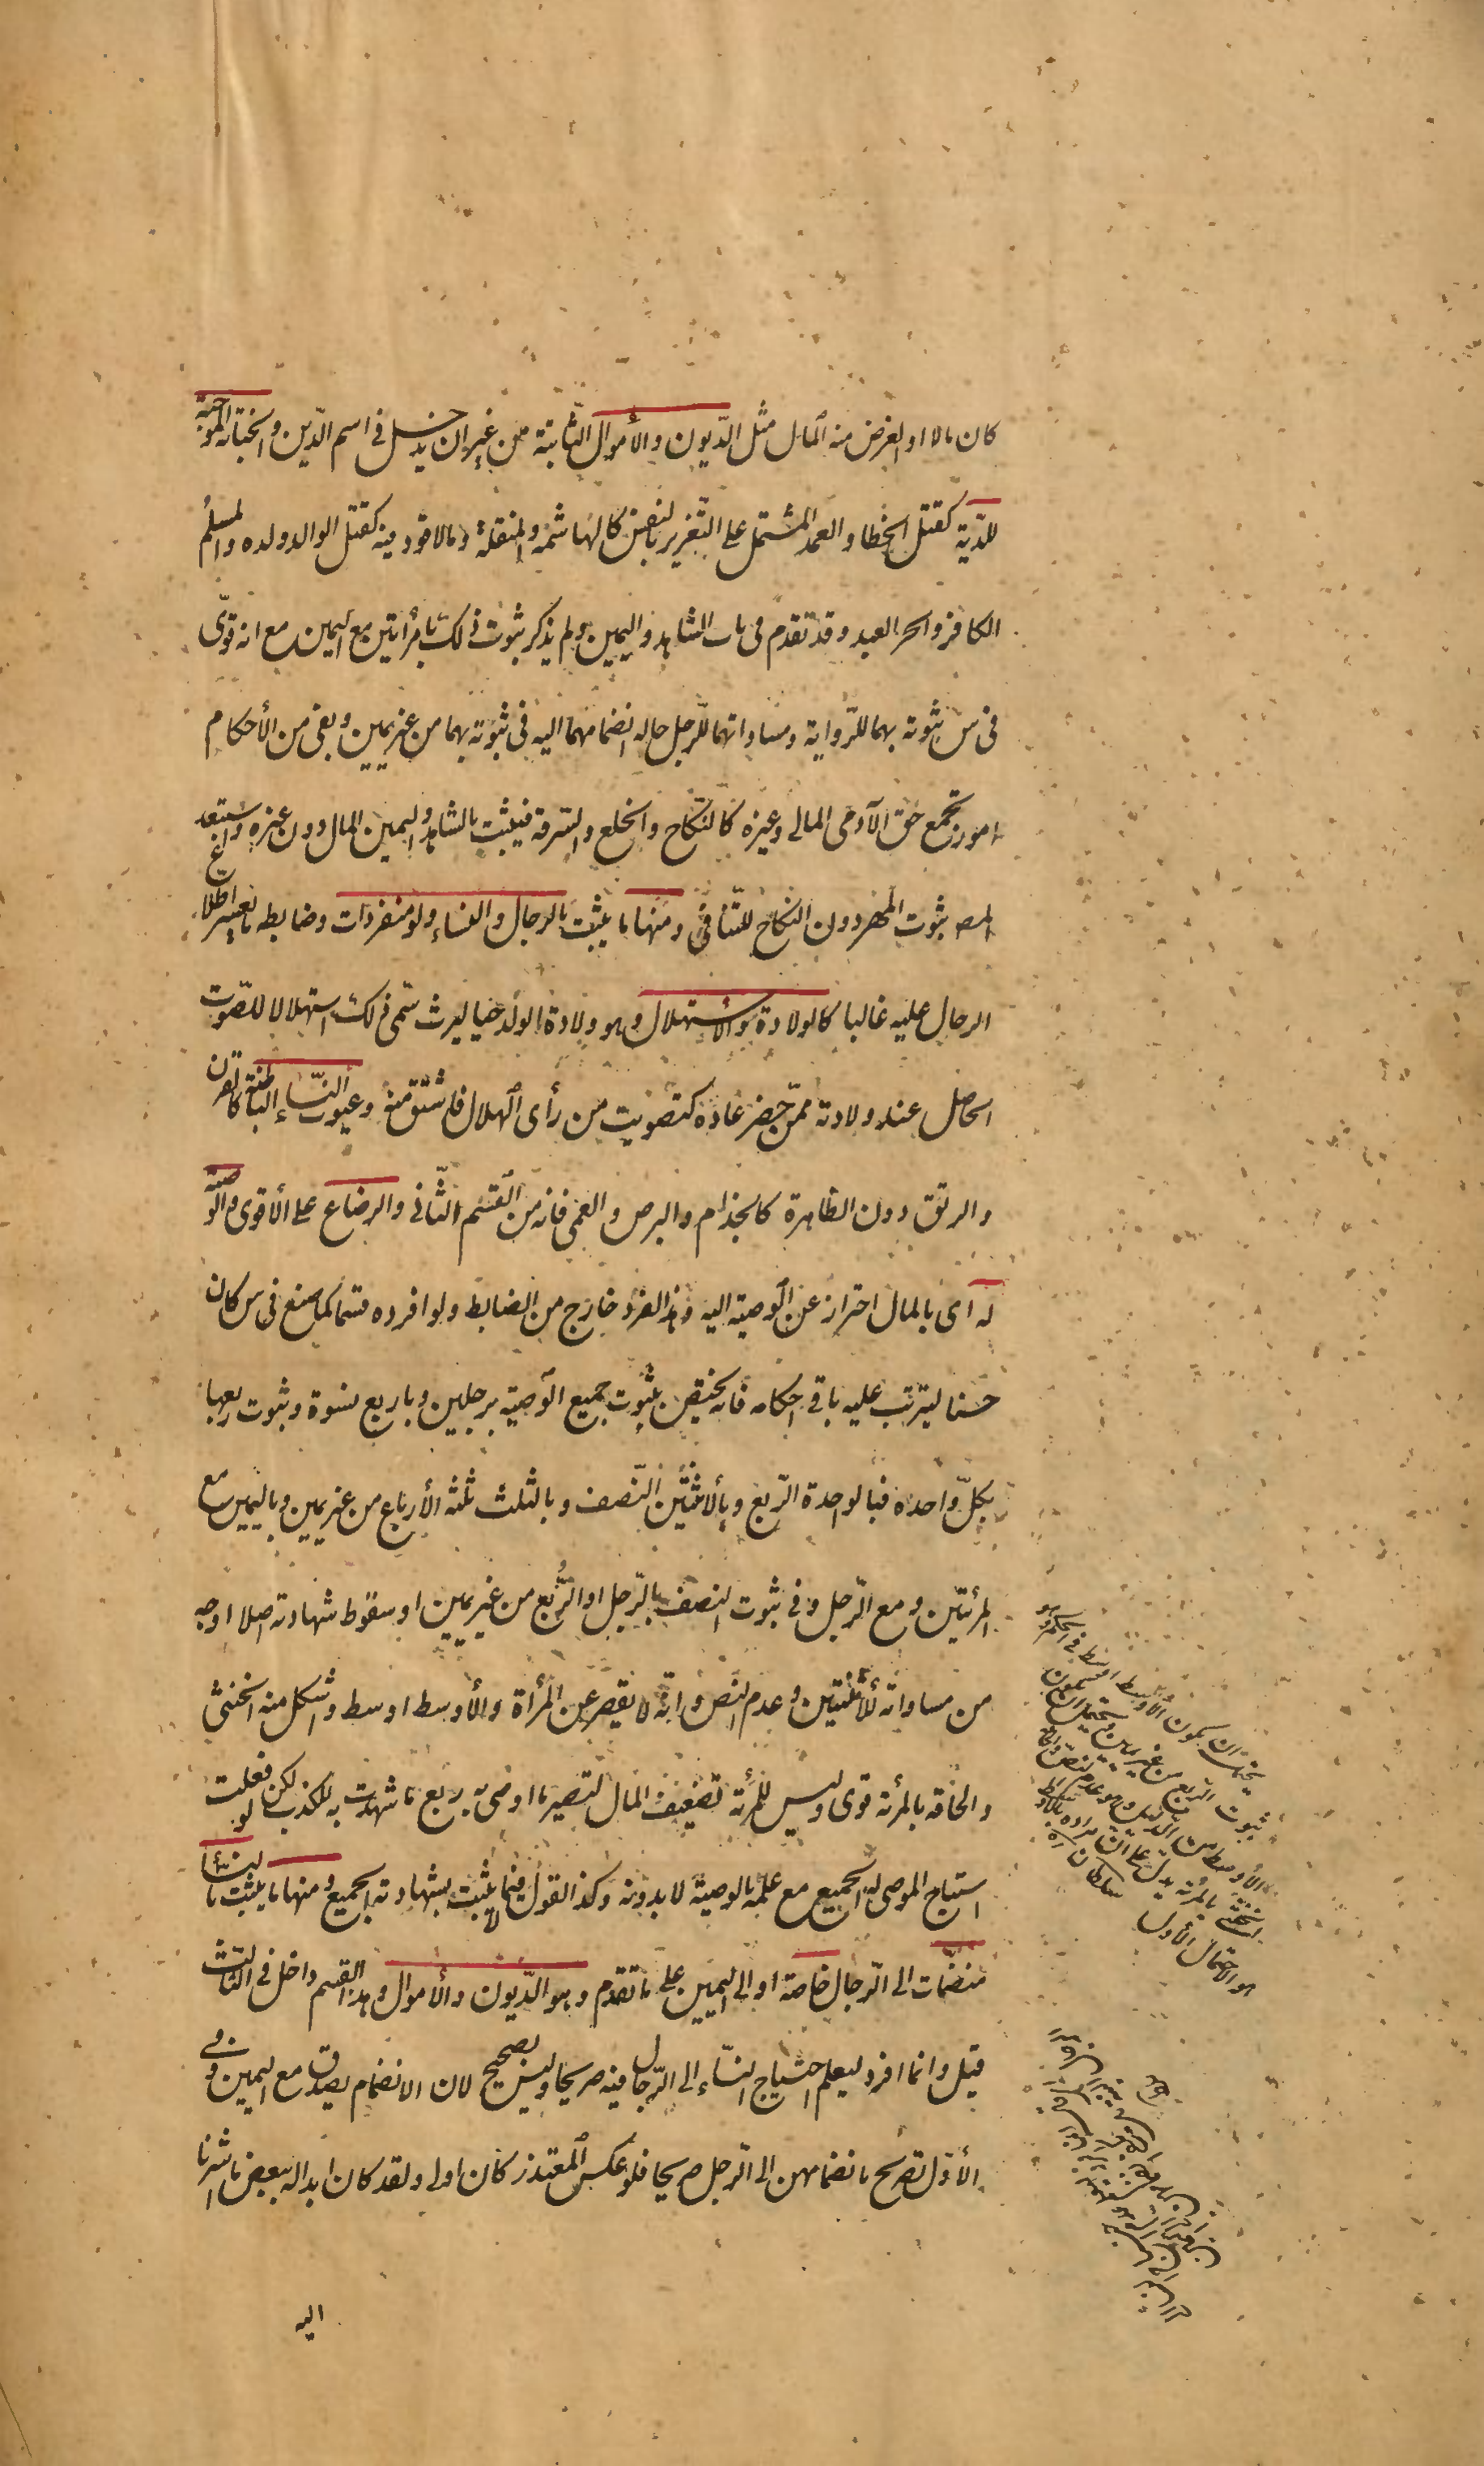 كان مالا او الغرض منه المال مثل الدّيون والأموال الثّابتة من غير ان يدخل فى اسم الدّين والجناية الموجبة
للدّية كقتل الخطا والعمد المشتمل على التّغرير بالنفس كالهاشمة والمنقلة وما لا قود فيه كقتل الوالد ولده والمسلم
الكافر والحر العبد وقد تقدم فى باب الشاهد واليمين ولم يذكر ثبوت ذلك بامرأتين مع اليمين مع انه قوّى
فى س ثبوته بهما للرّواية ومساواتهما للرّجل حاله انضمامهما اليه فى ثبوته بهما من غير يمين وبقى من الأحكام
امور تجمع حق الآدمى المالى وغيره كالنكاح والخلع والسّرقة فيثبت بالشاهد واليمين المال دون غيره واستبعد
المص ثبوت المهر دون النكاح للتّنافى ومنها ما يثبت بالرجال والنساء ولو منفردات وضابطه ما يعسر اطلاع
الرجال عليه غالبا كالولادة والأستهلال وهو ولادة الولد حيا ليرث سمّى ذلك استهلالا للصّوت
الحاصل عند ولادته ممّن حضر عادة كتصويت من رأى الهلال فاشتق منه وعيوب النّساء الباطنة كالقرن
والرتق دون الظاهرة كالجذام والبرص والعمى فانه من القسم الثّانى والرضاع على الأقوى والوصيّة
له اى بالمال احتراز عن الوصية اليه وهذا الفرد خارج من الضابط ولو افرده قسما كما صنع فى س كان
حسنا ليترتب عليه باقى احكامه فانه يختص بثبوت جميع الوصية برجلين وباربع نسوة وثبوت ربعها
بكلّ واحدة فبالواحدة الرّبع وبالأثنتين النّصف وبالثلث ثلثة الأرباع من غير يمين وباليمين مع
المرئتين ومع الرّجل وفى ثبوت النصف بالرّجل او الرُّبع من غير يمين او سقوط شهادته اصلا اوجه
من مساواته للأثنتين وعدم النص وانّه لا يقصر عن المرأة والأوسط اوسط واشكل منه الخنثى
والحاقه بالمرئة قوى وليس للمرئة تضعيف المال لتصير ما اوصى به ربع ما شهدت به للكذب لكن لو فعلت
استباح الموصى له الجميع مع علمه بالوصية لا بدونه وكذا القول فيما لا يثبت بشهادته الجميع ومنها ما يثبت بالنّساء
منضمّات الى الرّجال خاصة او الى اليمين على ما تقدم وهو الدّيون والأموال وهذا القسم داخل فى الثّالث
قيل وانما افرد ليعلم احتياج النّساء إلى الرّجال فيه صريحا وليس بصحيح لان الانضمام يصدق مع اليمين وفى
الأوّل تصريح بانضمامهن الى الرّجل صريحا فلو عكس المعتذر كان اولى ولقد كان ابداله ببعض ما اشرنا
اليه
يحتمل ان يكون الأوسط اوسط فى الحكم وهو
ثبوت الرّبع من غير يمين ويحتمل ان يكون
الأوسط من الدّليل وهو عدم النص
الخنثى بالمرئة يدل على انّ مراده بالأوسط
هو الاحتمال الأول سلطان ره